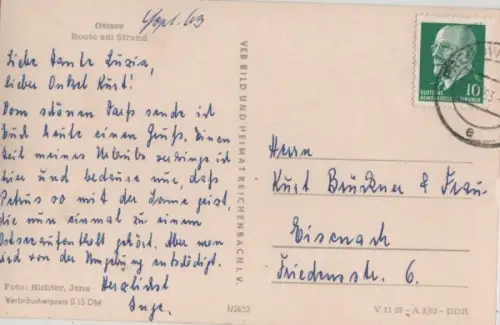 Ostsee
Boote am Strand
Sept. 63
Liebe Tante Luzia,
lieber Onkel Kurt!
Vom schönen Darß sende ich
Euch heute einen Gruß. Einen
Teil meines Urlaubs verbringe ich
hier und bedaure nur, daß
Petrus so mit der Sonne geizt,
die nun einmal zu einem
Ostseeaufenthalt gehört. Aber man
wird von der Umgebung entschädigt.
Herzlichst
Inge.
Foto: Richter, Jena
Verbraucherpreis 0.15 DM
VEB BILD UND HEIMAT REICHENBACH I. V.
1/2622
10
DEUTSCHE
DEMOKRATISCHE REPUBLIK
e
Herrn
Kurt Brückner & Frau
Eisenach
Friedensstr. 6.
V 11 28 - A 3/63 - DDR